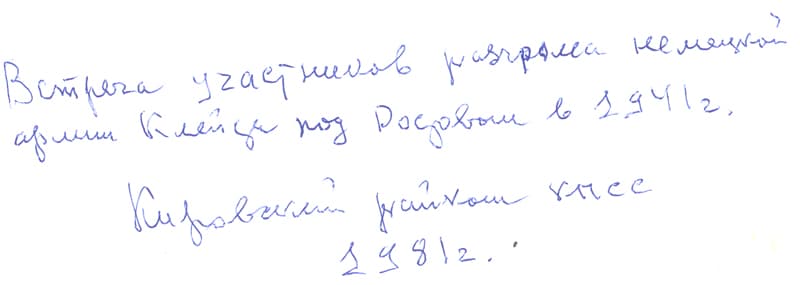 Встреча участников разгрома немецкой
армии Клейца под Ростовом в 1941г.
Кировский райком КПСС
1981г.